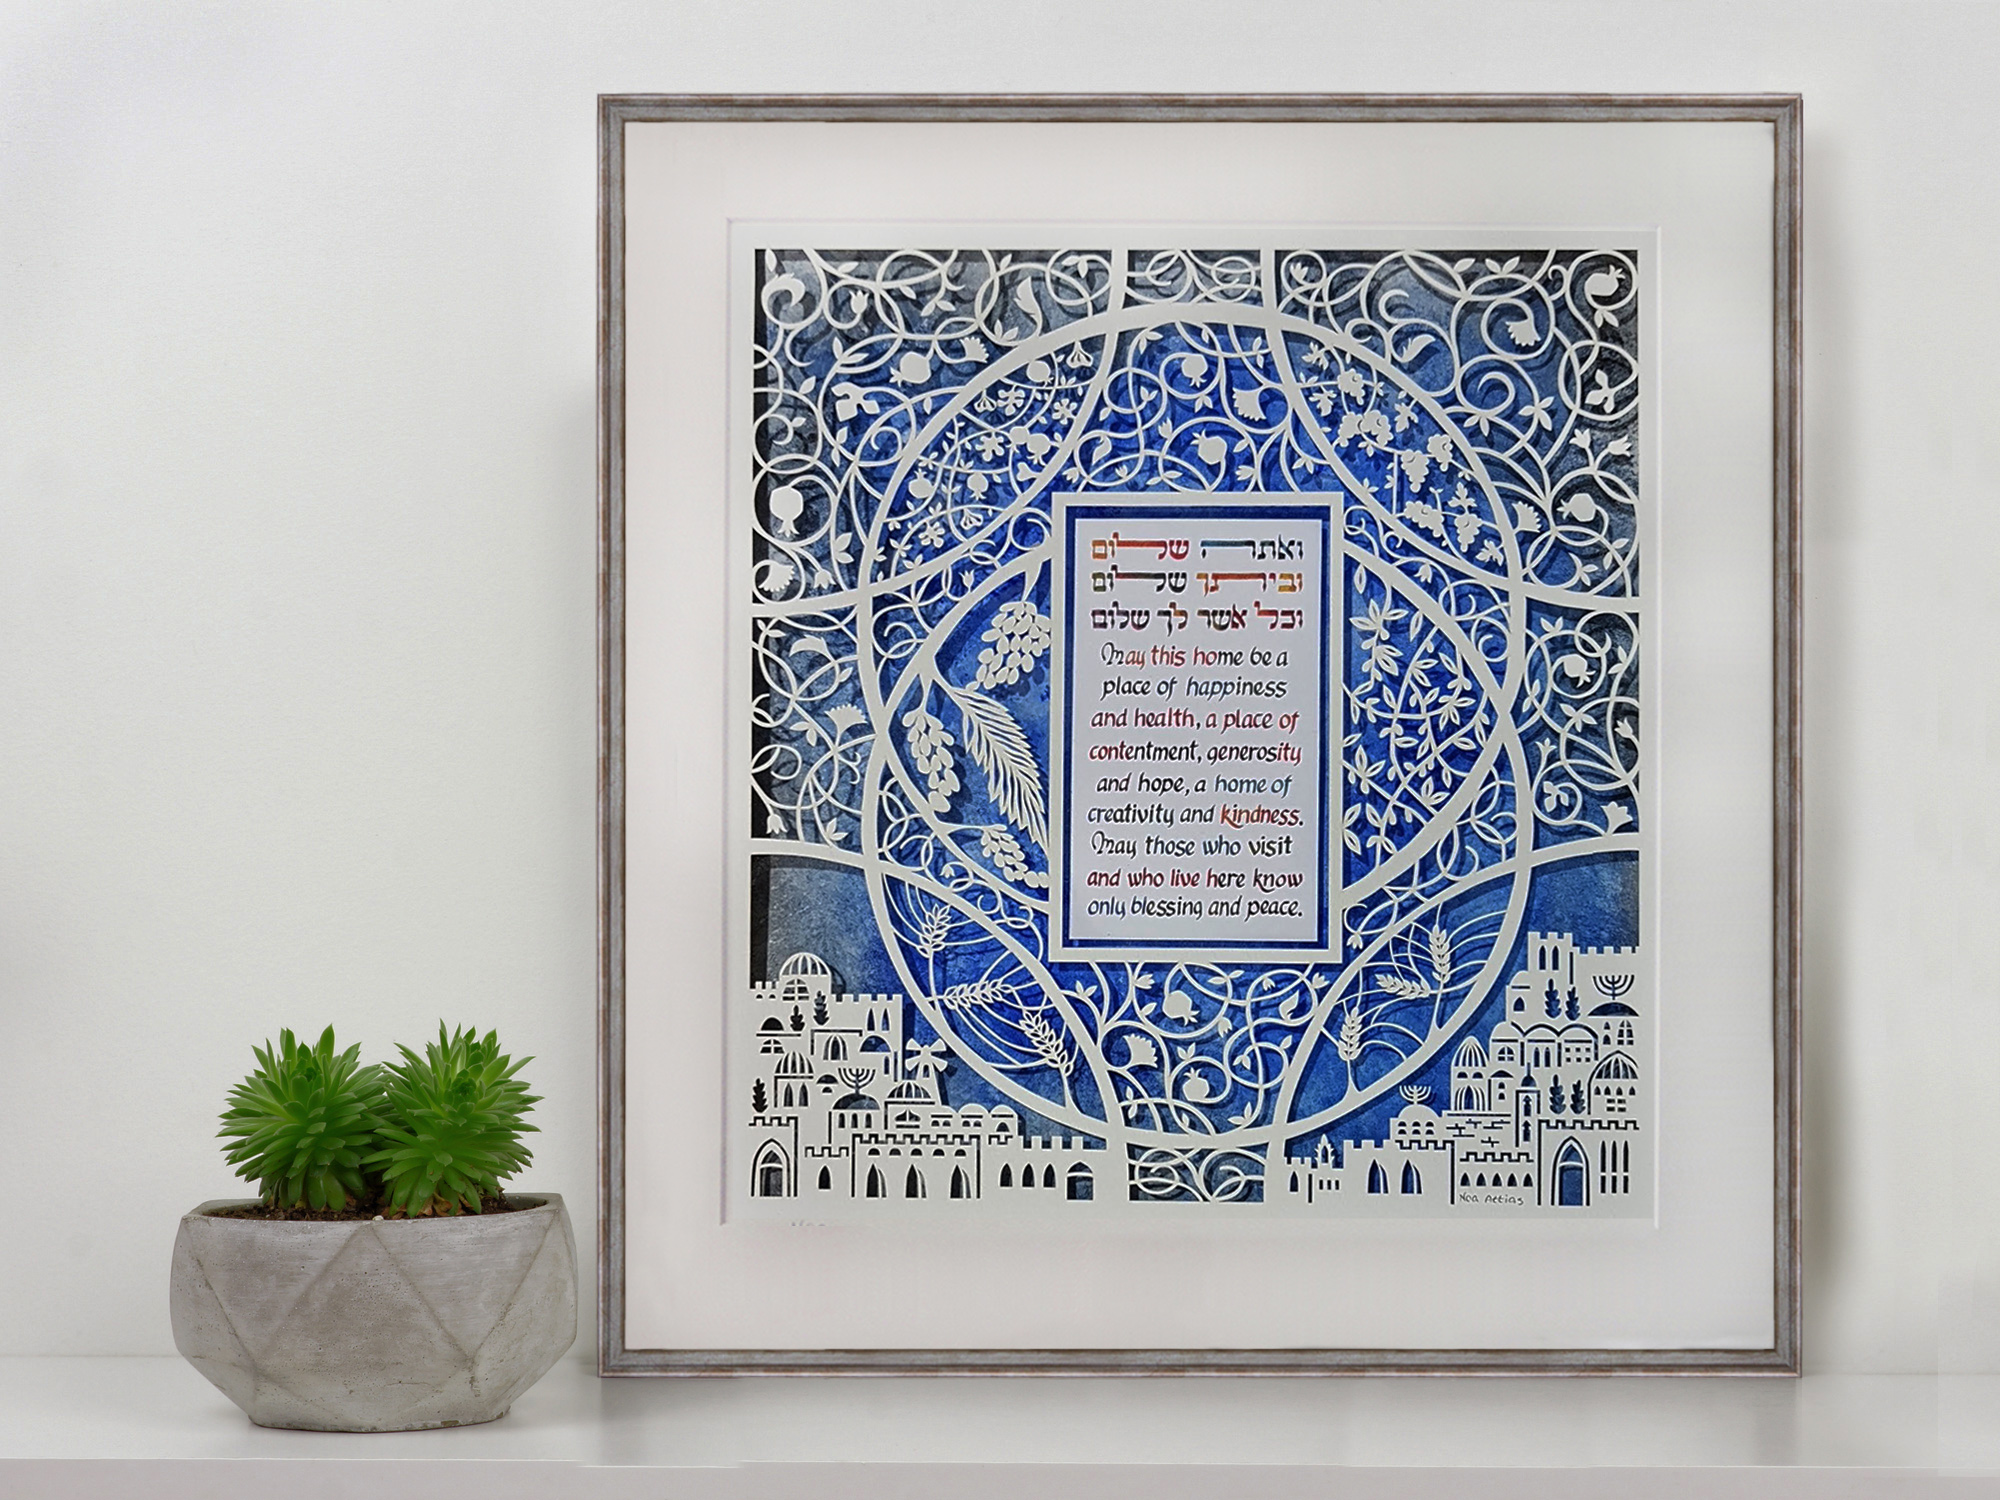 ואתה שלום
וביתך שלום
וכל אשר לך שלום
May this home be a
place of happiness
and health, a place of
contentment, generosity
and hope, a home of
creativity and kindness.
May those who visit
and who live here know
only blessing and peace.
Noa Attias